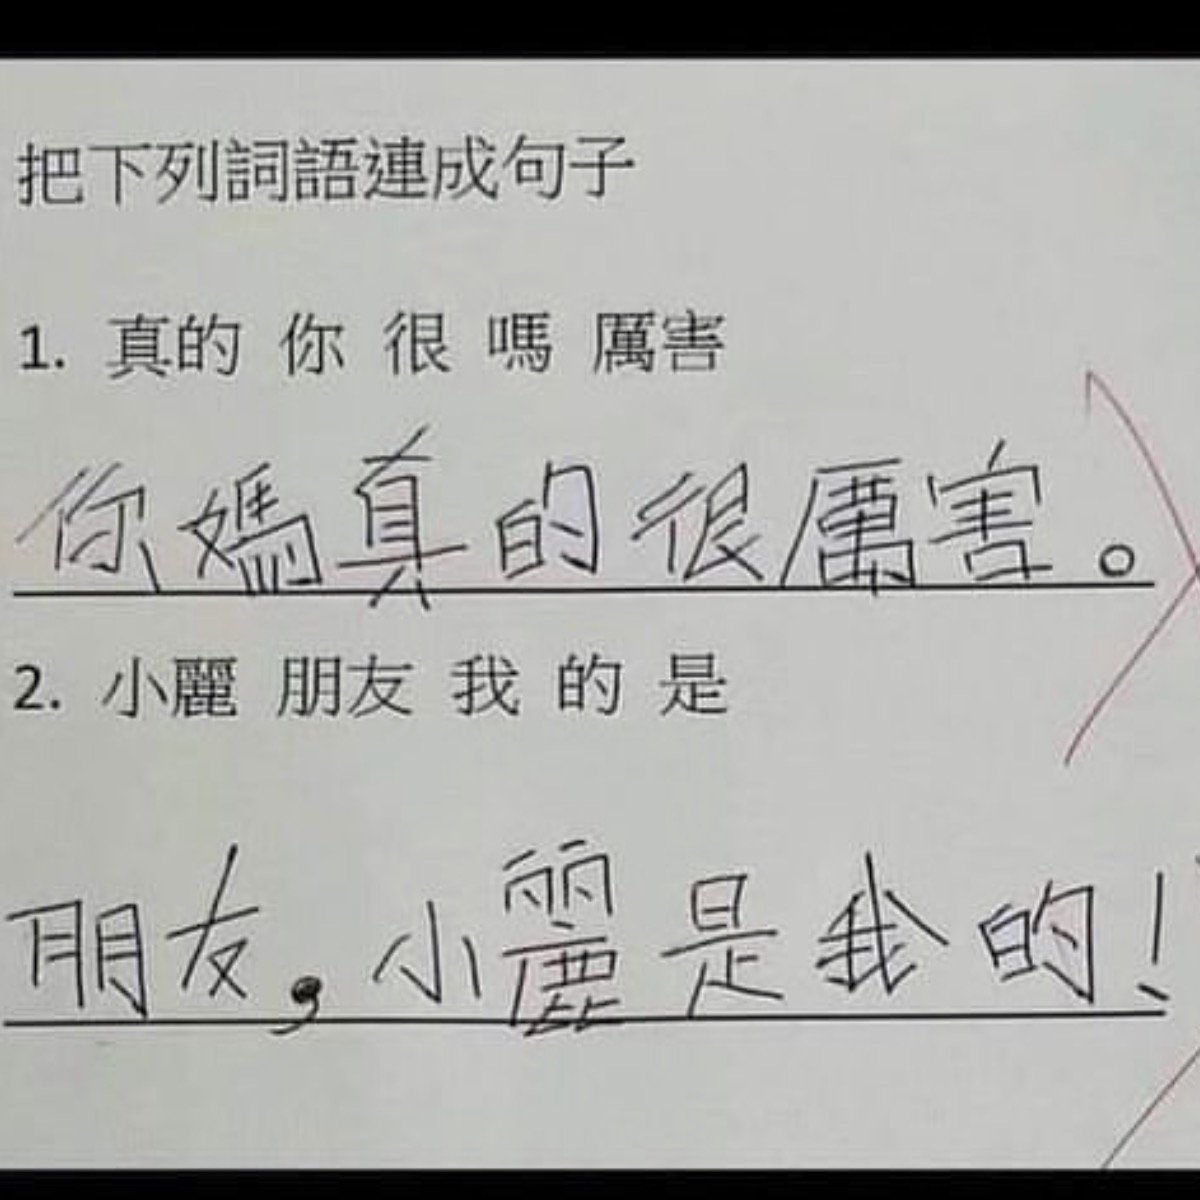 把下列詞語連成句子
1. 真的 你 很 嗎 厲害
你媽真的很厲害。
2. 小麗 朋友 我 的 是
朋友,小麗是我的!